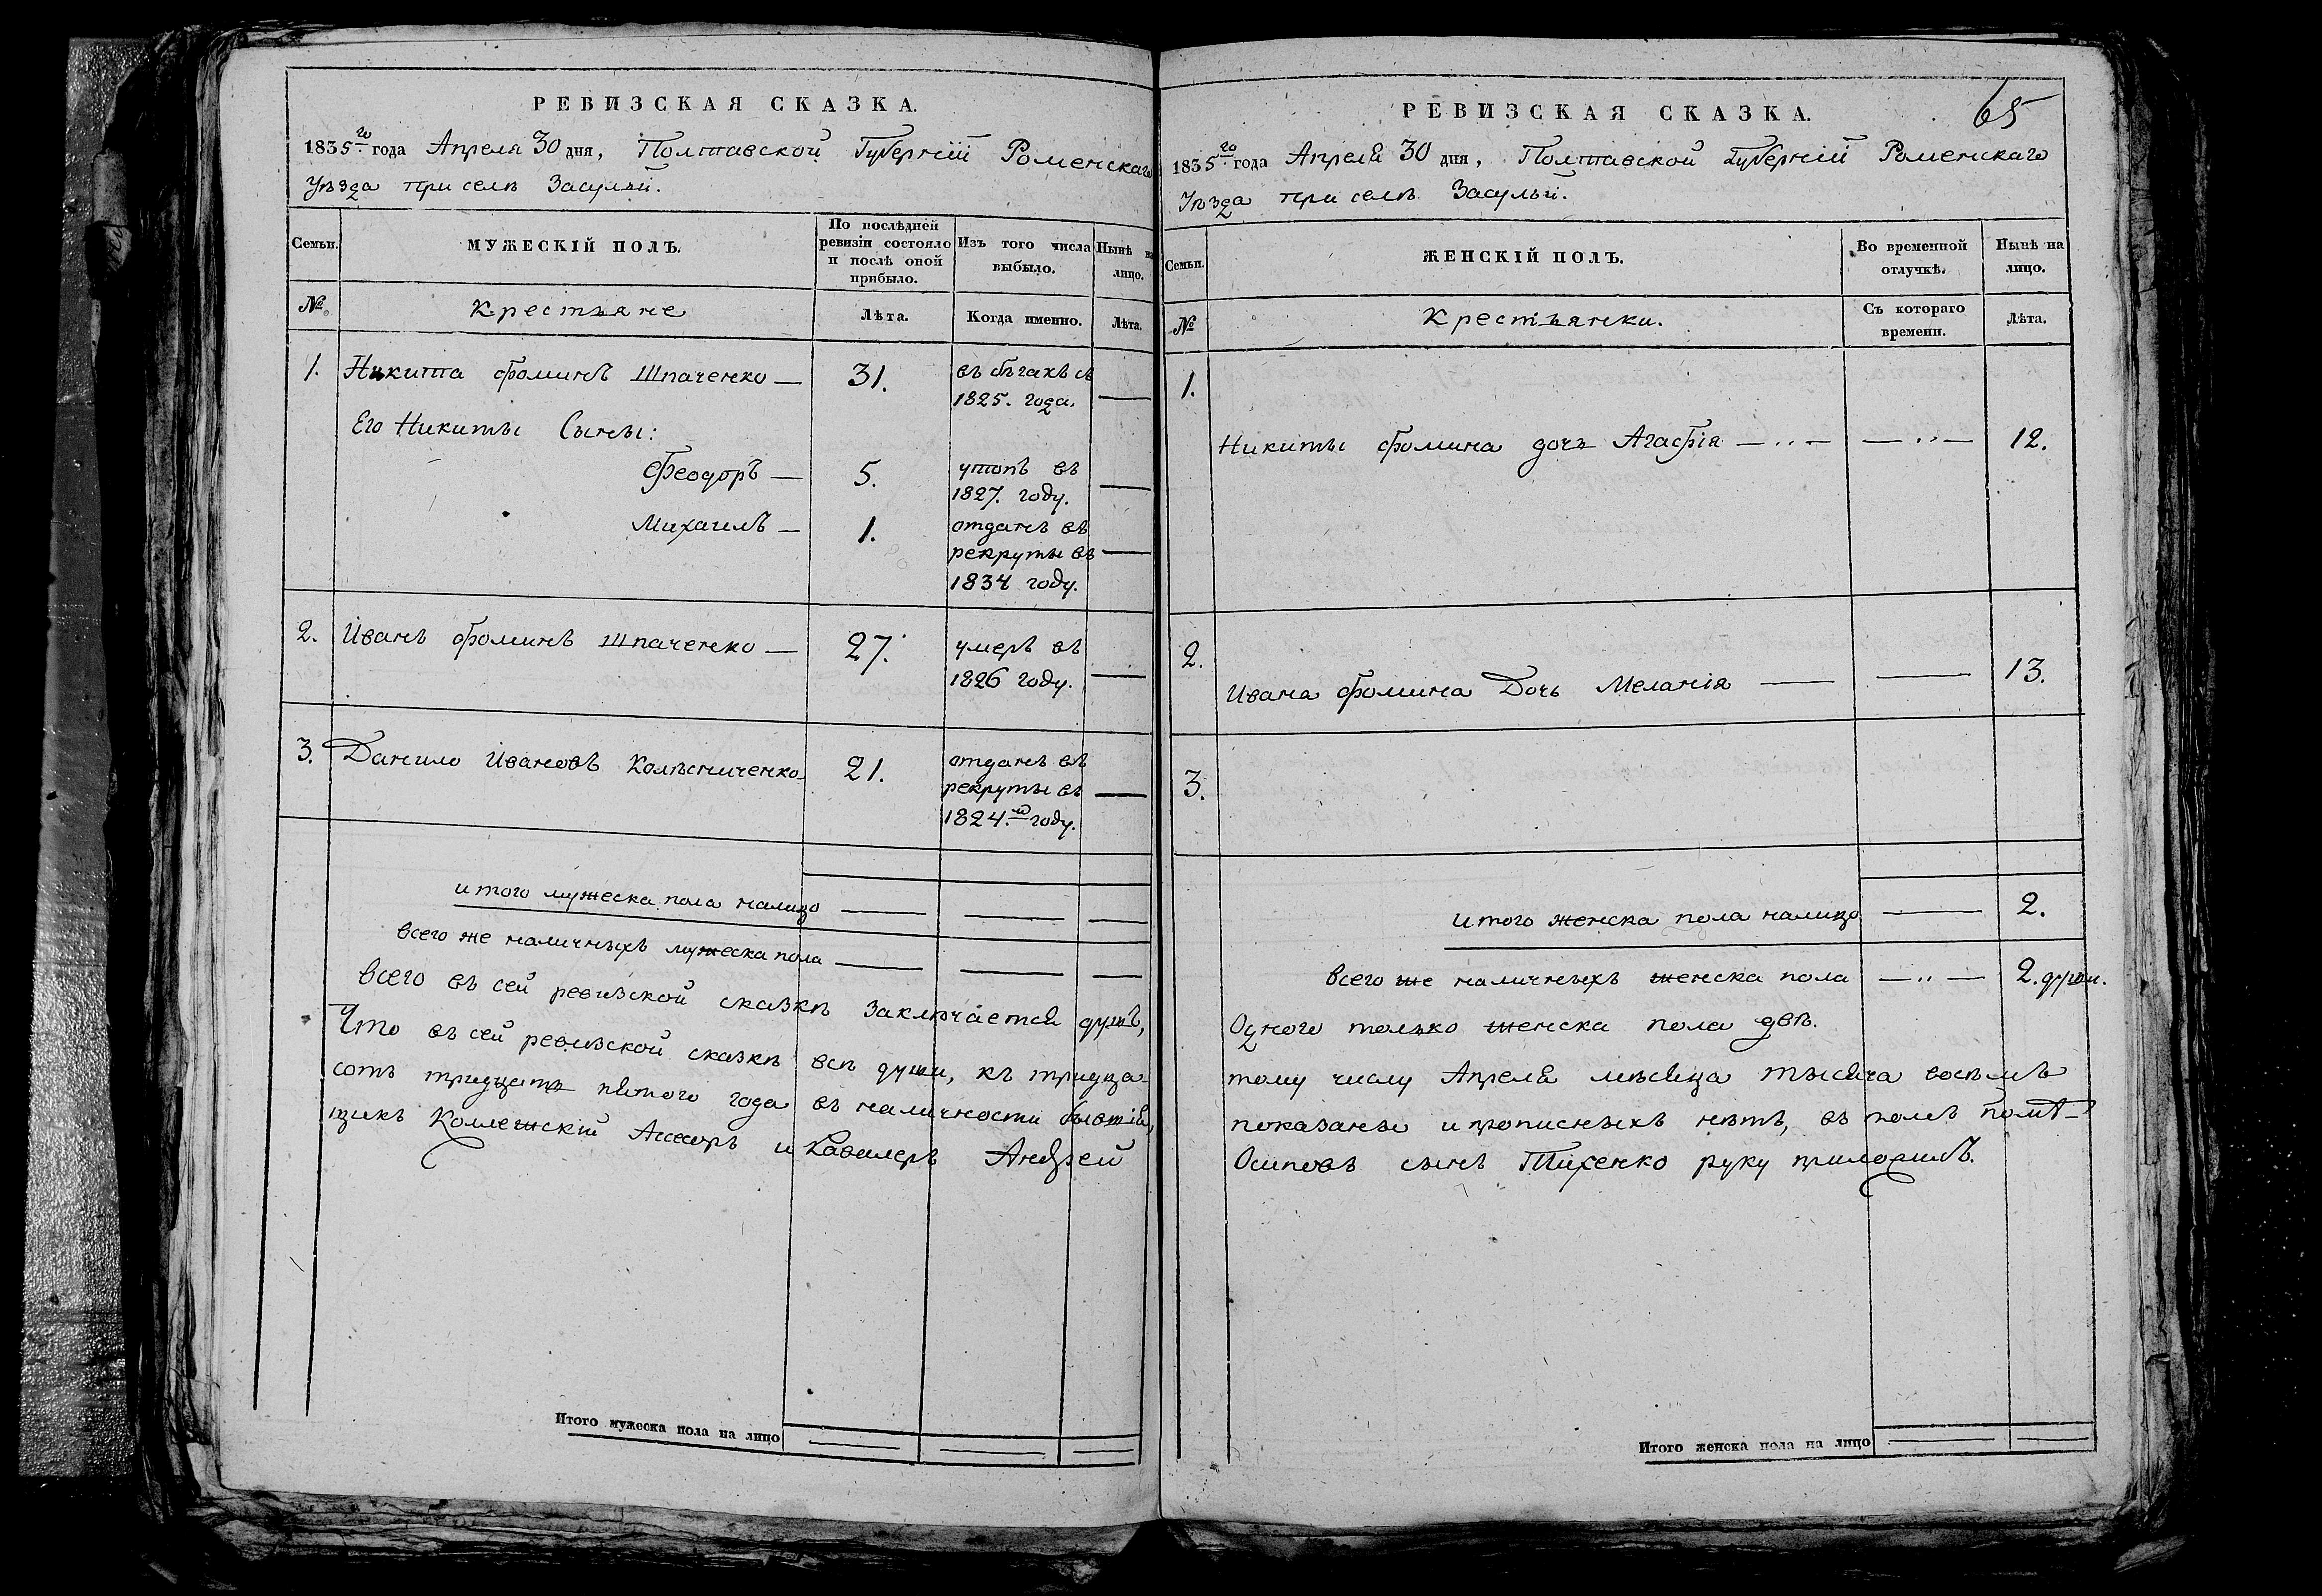 РЕВИЗСКАЯ СКАЗКА.
1835го года Апреля 30 дня, Полтавской Губернїи Роменскаго
Уѣзда при селѣ Засульи.
Семьи.
МУЖЕСКІЙ ПОЛЪ.
По послѣдней ревизіи состояло и послѣ оной прибыло.
Изъ того числа выбыло.
Нынѣ на лицо.
№
Крестьяне
Лѣта.
Когда именно.
Лѣта.
1. Никита Фоминъ Шпаченко — 31. въ бѣгахъ съ —
1825. года.
Его Никиты Сыны:
Феодоръ — 5. утопъ въ —
1827. году.
Михаилъ — 1. отданъ въ
рекруты въ —
1834 году.
2. Иванъ Фоминъ Шпаченко — 27. умеръ въ —
1826 году.
3. Данило Ивановъ Колѣсниченко 21. отданъ въ
рекруты въ —
1824.го году.
итого мужеска пола налицо — — —
всего же наличныхъ мужеска пола — — —
Всего въ сей ревизской сказкѣ заключается душъ,
Что въ сей ревизской сказкѣ всѣ души, къ тридца-
сотъ тридцать пятого года въ наличности бывшія,
щикъ Колежскій Ассесоръ и Кавалеръ Андрей
Итого мужеска пола на лицо
65
РЕВИЗСКАЯ СКАЗКА.
1835го года Апреля 30 дня, Полтавской Губерніи Роменскаго
Уѣзда при селѣ Засульи.
Семьи.
ЖЕНСКІЙ ПОЛЪ.
Во временной отлучкѣ.
Нынѣ на лицо.
№
Крестьянки.
Съ котораго времени.
Лѣта.
1.
Никиты Фомина дочь Агафія — „ — — „ — 12.
2.
Ивана Фомина Дочь Меланія — — 13.
3.
итого женска пола налицо — 2.
Всего же наличныхъ женска пола — „ — 2. души.
Одного только женска пола двѣ.
тому числу Апреля мѣсяца тысяча восѣмъ
показаны и прописныхъ нѣтъ, въ томъ помѣ-
Осиповъ сынъ Тихенко руку приложилъ.
Итого женска пола на лицо